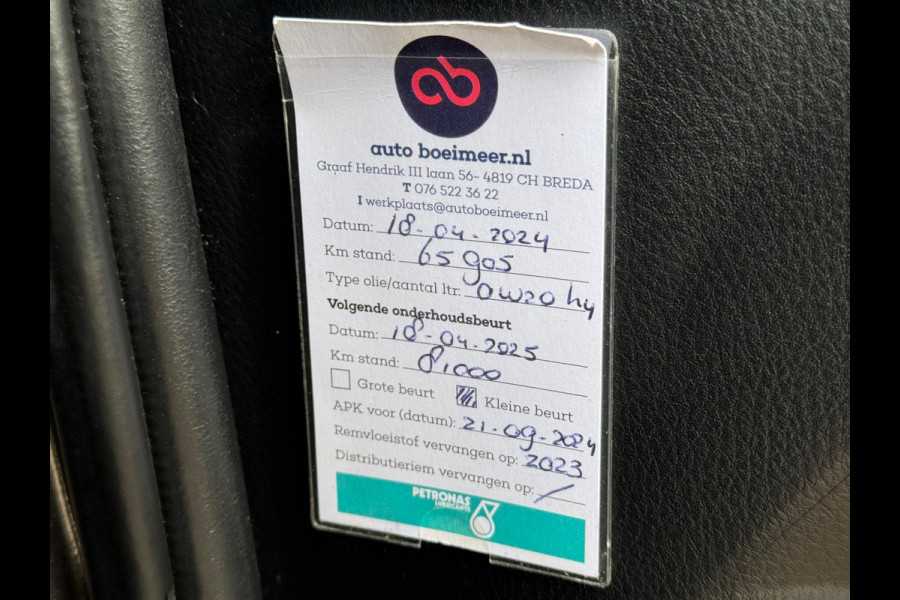 ab
auto boeimeer.nl
Graaf Hendrik III laan 56- 4819 CH BREDA
T 076 522 36 22
I werkplaats@autoboeimeer.nl
Datum: 18-04-2024
Km stand: 65905
Type olie/aantal ltr: 0W20 hy
Volgende onderhoudsbeurt
Datum: 18-04-2025
Km stand: 81000
Grote beurt Kleine beurt
APK voor (datum): 21-09-2024
Remvloeistof vervangen op: 2023
Distributieriem vervangen op: /
PETRONAS
LUBRICANTS